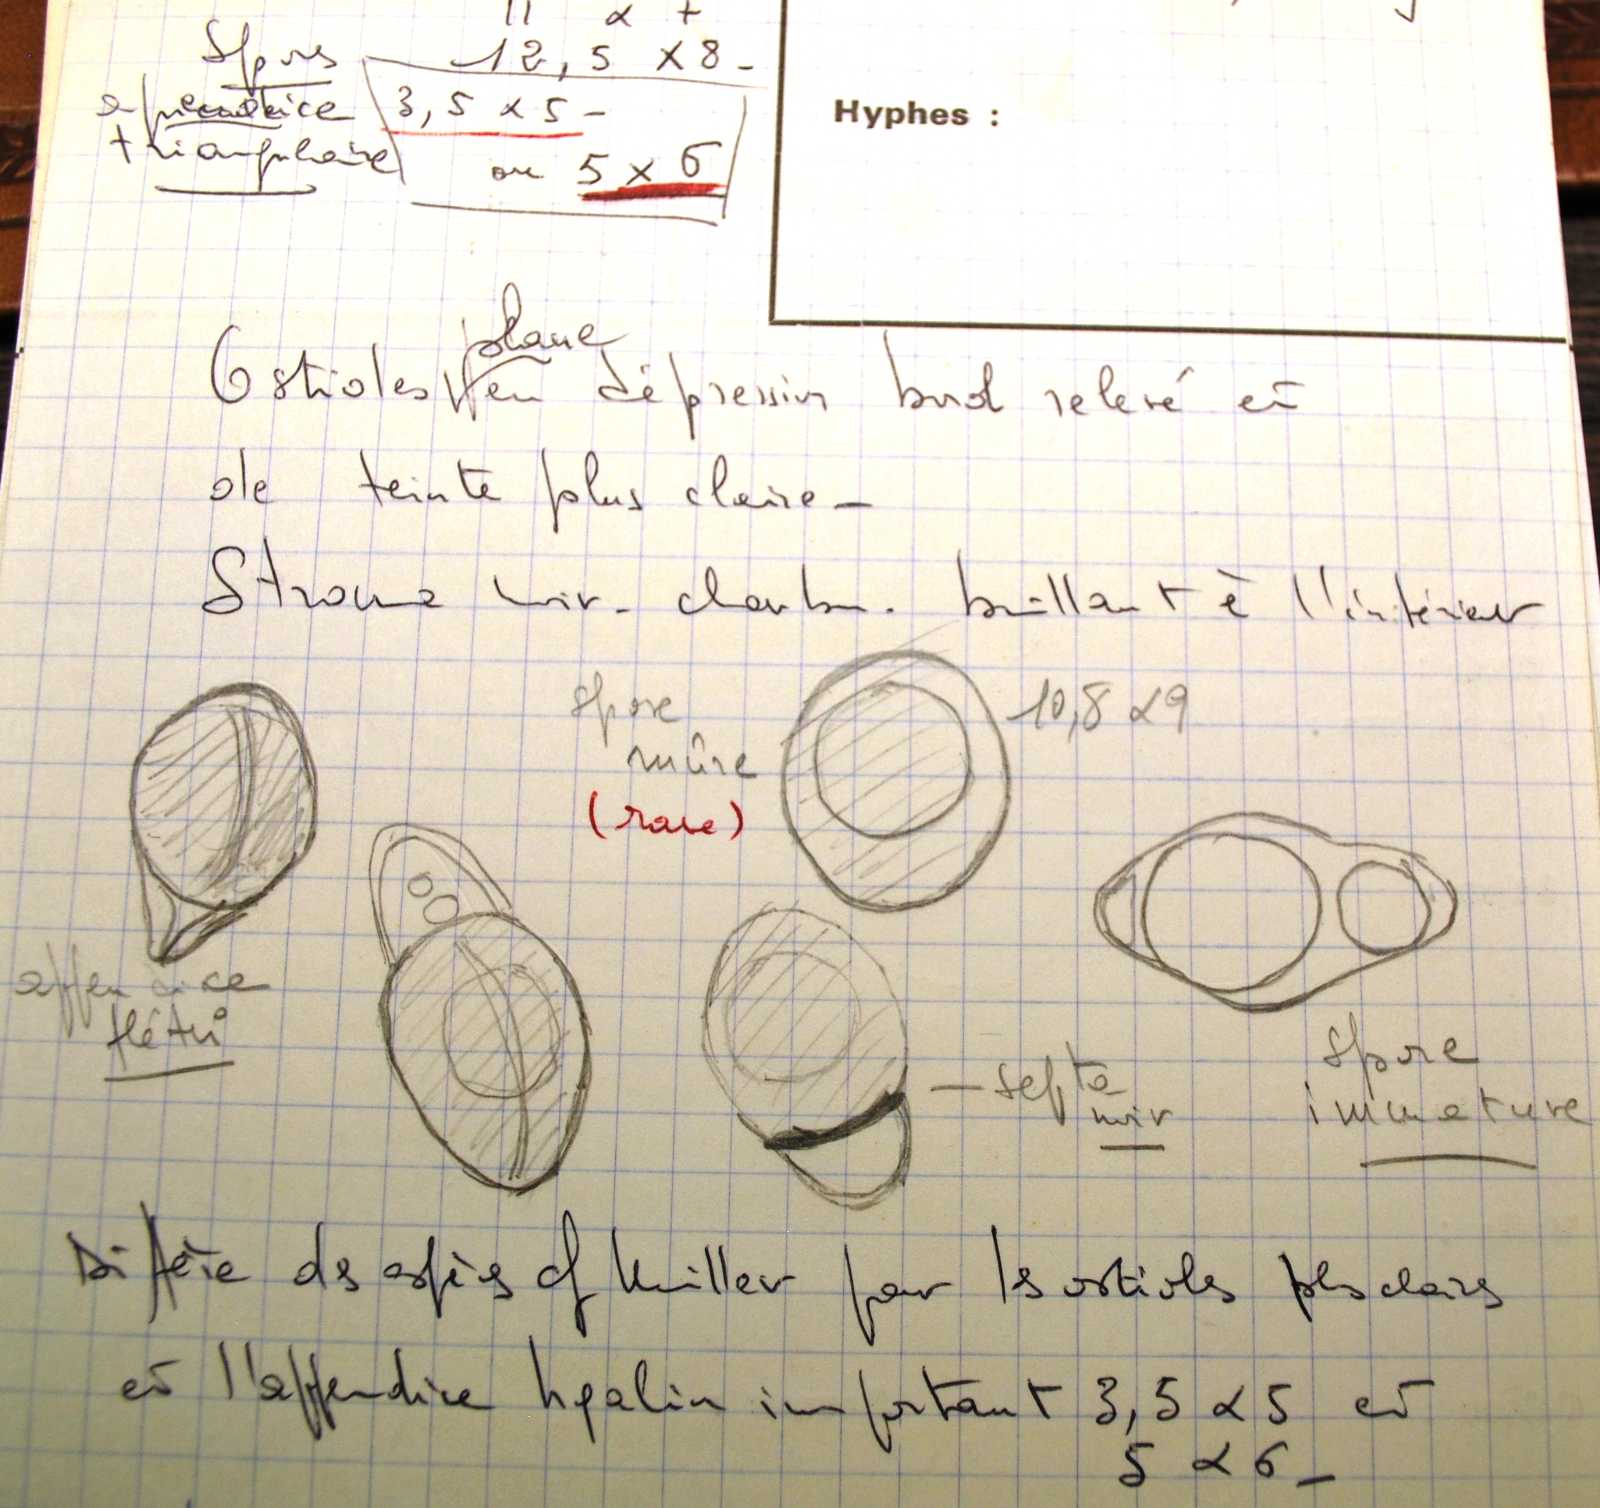 11 x +
Spores 12,5 x 8 -
appendice 3,5 x 5 -
triangulaire ou 5 x 6
Hyphes :
plane
Ostioles en dépression bord relevé et
de teinte plus claire -
Stroma noir. charbon. brillant à l'intérieur
spore 10,8 x 9
mûre
(rare)
appendice
flétri
septe
noir
spore
immature
Diffère des espèces cf Miller par ls ostioles pls clairs
et l'appendice hyalin important 3,5 x 5 et
5 x 6 -